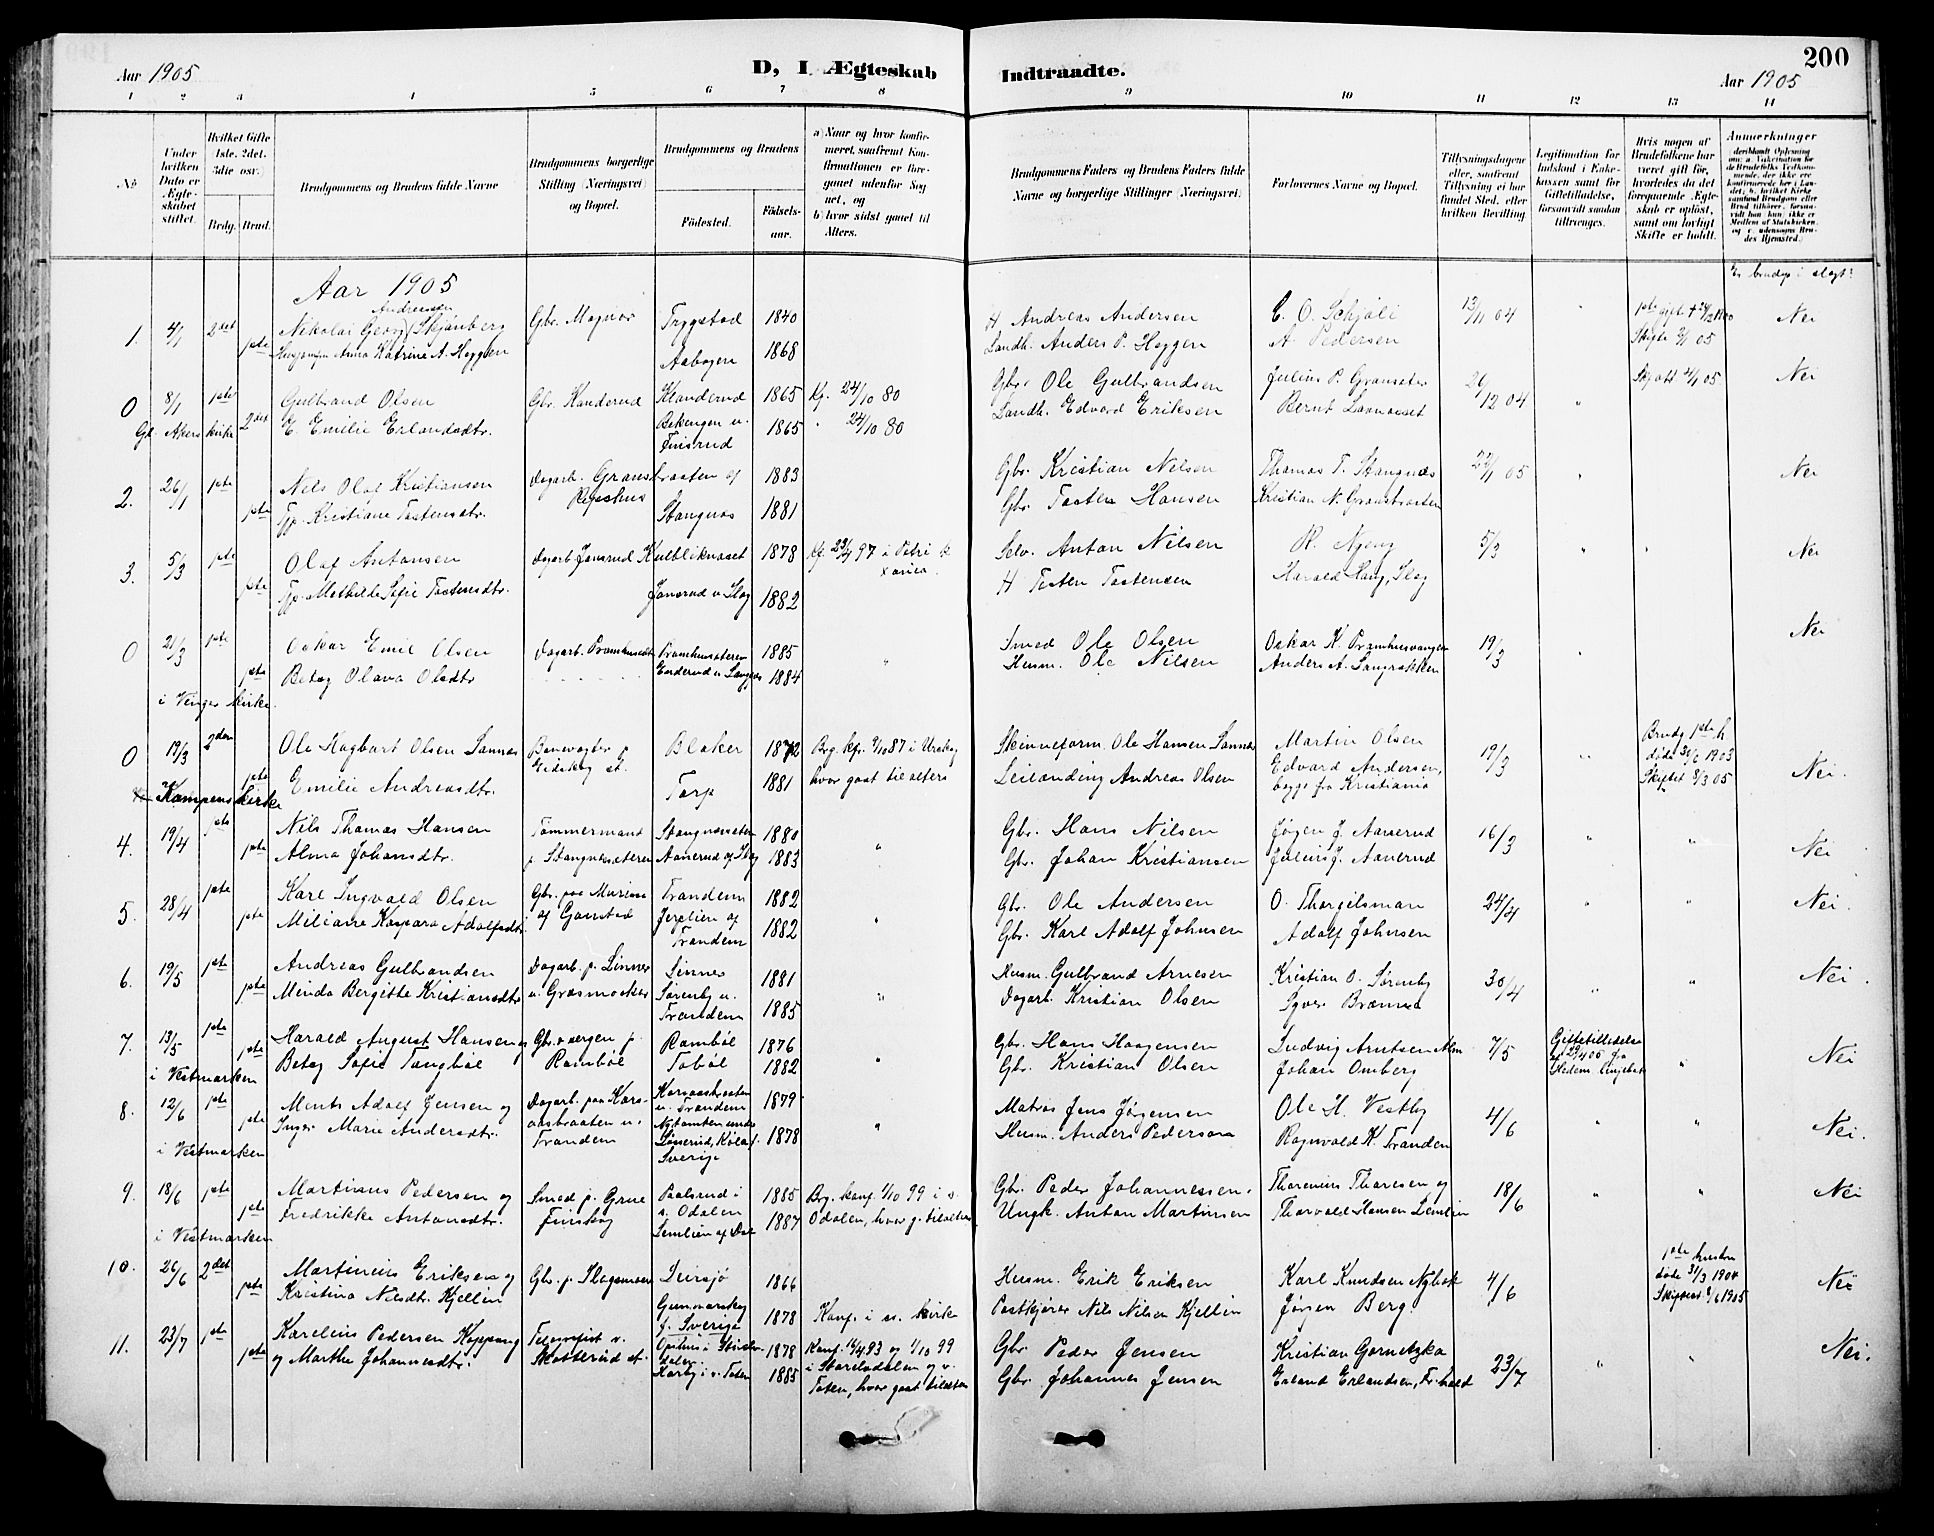 200
Aar 1905
D, I Ægteskab Indtraadte.
Aar 1905
1 2 3 4 5 6 7 8 9 10 11 12 13 14
No
Under hvilken Dato er Ægteskabet stiftet.
Hvilket Gifte (1ste. 2det. 3die osv.)
Brdg. Brud.
Brudgommens og Brudens fulde Navne
Brudgommens borgerlige Stilling (Næringsvei) og Bopæl.
Brudgommens og Brudens
Fødested.
Fødselsaar.
a) Naar og hvor konfirmeret, samfremt Konfirmationen er foregaaet udenfor Sognet, og
b) hvor sidst gaaet til Alters.
Brudgommens Faders og Brudens Faders fulde Navne og borgerlige Stillinger (Næringsvei).
Forlovernes Navne og Bopæl.
Tillysningsdagene eller, saafremt Tillysning ei har fundet Sted, efter hvilken Bevilling
Legitimation for Indskud i Enkekassen samt for Giftetilladelse, forsaavidt saadan tiltrænges.
Hvis nogen af Brudefolkene har været gift før, hvorledes da det foregaaende Ægteskab er opløst, samt om lovligt Skifte er holdt.
Anmerkninger
Er brudep. i slægt?
Aar 1905
1. 4/1 2det Nikolai Georg Andreassen Skjønberg Gbr. Magnor Trygstad 1840 Andreas Andersen C. O. Schjöli 13/11 04 Nei
1ste Anna Katrine A. Heggen Aabogen 1868 Landh. Anders P. Heggen A. Pedersen Skifte 3/1 05
0 8/1 1ste Gulbrand Olsen Gbr. Kanderud Klanderud 1865 Kf. 24/10 80 Gbr. Ole Gulbrandsen Julius P. Granseter 26/12 04 " Nei
Gl. Akers kirke 2det E. Emilie Erlandsdtr. Bekengen u. Finsrud 1865 " 24/10 80 Landh. Edvard Eriksen Bernt
2. 26/1 1ste Nils Olaf Kristiansen Dagarb. Gransbraaten af 1883 Gbr. Kristian Nilsen Thomas T. Stangnæs 22/1 05 " Nei
1ste Kristiane Tostensdtr. Stangnæs 1881 Gbr. Tosten Hansen Kristian N. Gransbraaten
3. 5/3 1ste Olaf Antonsen Dagarb. Jansrud Kulbliknæset 1878 Kf. 25/4 97 i Petri k. Selv. Anton Nilsen R. Njeng 5/3 " " Nei
1ste Mathilde Sofie Tostensdtr. Jansrud u. Slog 1882 Tosten Tostensen Harald Haug, Slog
0 21/3 1ste Oskar Emil Olsen Dagarb. Pramhusæter Pramhusæteren 1885 " Smed Ole Olsen Oskar K. Pramhusvangen 19/3 " Nei
1ste Betzy Olava Olsdtr. 1884 Husm. Ole Nilsen Anders A. Langrakken
i Vinger kirke
0 19/3 2den Ole Hagbart Olsen Sannæs Banevogter p. Eidskog st. Blaker 1872 Brg. kfr. 9/10 87 i Urskog Skinneform. Ole Hansen Sannæs Martin Olsen 19/3 " Brudg. 1ste h. døde 30/6 1903
1ste Emilie Andreasdtr. Torp 1881 hvor gaat til alters Leilænding Andreas Olsen Edvard Andersen, begge fra Kristiania Skiftet 8/3 05 Nei.
Kampens kirke
4. 19/4 1ste Nils Thomas Hansen Tømmermand Stangnæsæteren 1880 " Gbr. Hans Nilsen Jørgen J. Aaserud 16/3 " " Nei
1ste Alma Johansdtr. p. Stangnæsæteren Aanerud af Slog 1883 Gbr. Johan Kristiansen Julius J. Aanerud
5. 28/4 1ste Karl Ingvald Olsen Gbr. paa af Gonstad Trandem 1882 " Gbr. Ole Andersen O. Thorgilsman 24/4 " " Nei.
1ste Miliane Kaspara Adolfsdtr. Jerplien af Trandem 1882 Gbr. Karl Adolf Johnsen Adolf Johnsen
6. 19/5 1ste Andreas Gulbrandsen Dagarb. p. Linner Linner 1881 " Husm. Gulbrand Arnesen Kristian O. Sørenby 30/4 " " Nei.
1ste Minda Bergitte Kristiansdtr. u. Græsmocker Sørenby u. Trandem 1885 Dagarb. Kristian Olsen
7. 13/5 1ste Harald August Hansen og Gbr. p. Rambøl Rambøl 1876 " Gbr. Hans Haagensen Ludvig Arntsen Alm 7/5 Giftetilladelse af 29/4 05 fra " Nei
1ste Betzy Sofie Tangbøl Tobøl 1882 Gbr. Kristian Olsen Johan Omberg
i Vestmarken
8. 12/6 1ste Ments Adolf Jensen og Dagarb. paa Korsaasbraaten u. Trandem Korsaasbraaten u. Trandem 1879 " Matros Jens Jørgensen Ole H. Vestby 4/6 " " Nei.
1ste Inger Marie Andersdtr. Sverige 1878 Husm. Anders Pederson Ragnvald K. Tranden
i Vestmarken
9. 18/6 1ste Martinus Pedersen og Smed p. Grue Finskog Paalsrud i s. Odalen 1885 Brg. konf. 1/10 99 i s. Odalen, hvor g. til alters Gbr. Peder Johannessen. Thorenius Thoresen og 18/6 " " Nei
1ste Fredrikke Antonsdtr. Lemlien af 1887 Ungk. Anton Martinsen Thorvald Hansen Lemlin
i Vestmarken
10. 26/6 2det Martinius Eriksen og Gbr. p. Slagsmoen Deirsjø 1866 Husm. Erik Eriksen Karl Knudsen Nybok 4/6 1ste hustru døde 31/3 1904 Nei
1ste Kristina Nilsdtr. Kjellin Gunnarskog f. Sverige 1878 Konf. i sv. kirke Postkjører Nils Nilsen Kjellin Jørgen Berg. Skiftet 1/6 1905
11. 23/7 1ste Karelius Pedersen Koppang Telegrafist v. Skotterud st. 1878 Konf. 16/4 93 og 1/10 99 i Storelvdalen og v. Toten, hvor gaat til alters Gbr. Peder Jensen Kristian Gornetzka 23/7 " " Nei.
1ste og Marthe Johannesdtr. Karby i v. Toten 1885 Gbr. Johannes Jensen Erland Erlandsen,